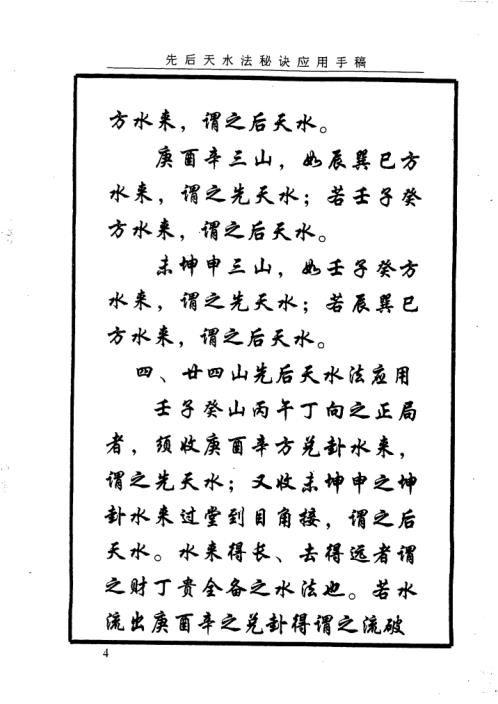 先后天水法秘诀应用手稿
方水来，谓之后天水。
庚酉辛三山，如辰巽巳方
水来，谓之先天水；若壬子癸
方水来，谓之后天水。
未坤申三山，如壬子癸方
水来，谓之先天水；若辰巽巳
方水来，谓之后天水。
四、廿四山先后天水法应用
壬子癸山丙午丁向之正局
者，须收庚酉辛方兑卦水来，
谓之先天水；又收未坤申之坤
卦水来过堂到目角接，谓之后
天水。水来得长、去得远者谓
之财丁贵全备之水法也。若水
流出庚酉辛之兑卦得谓之流破
4